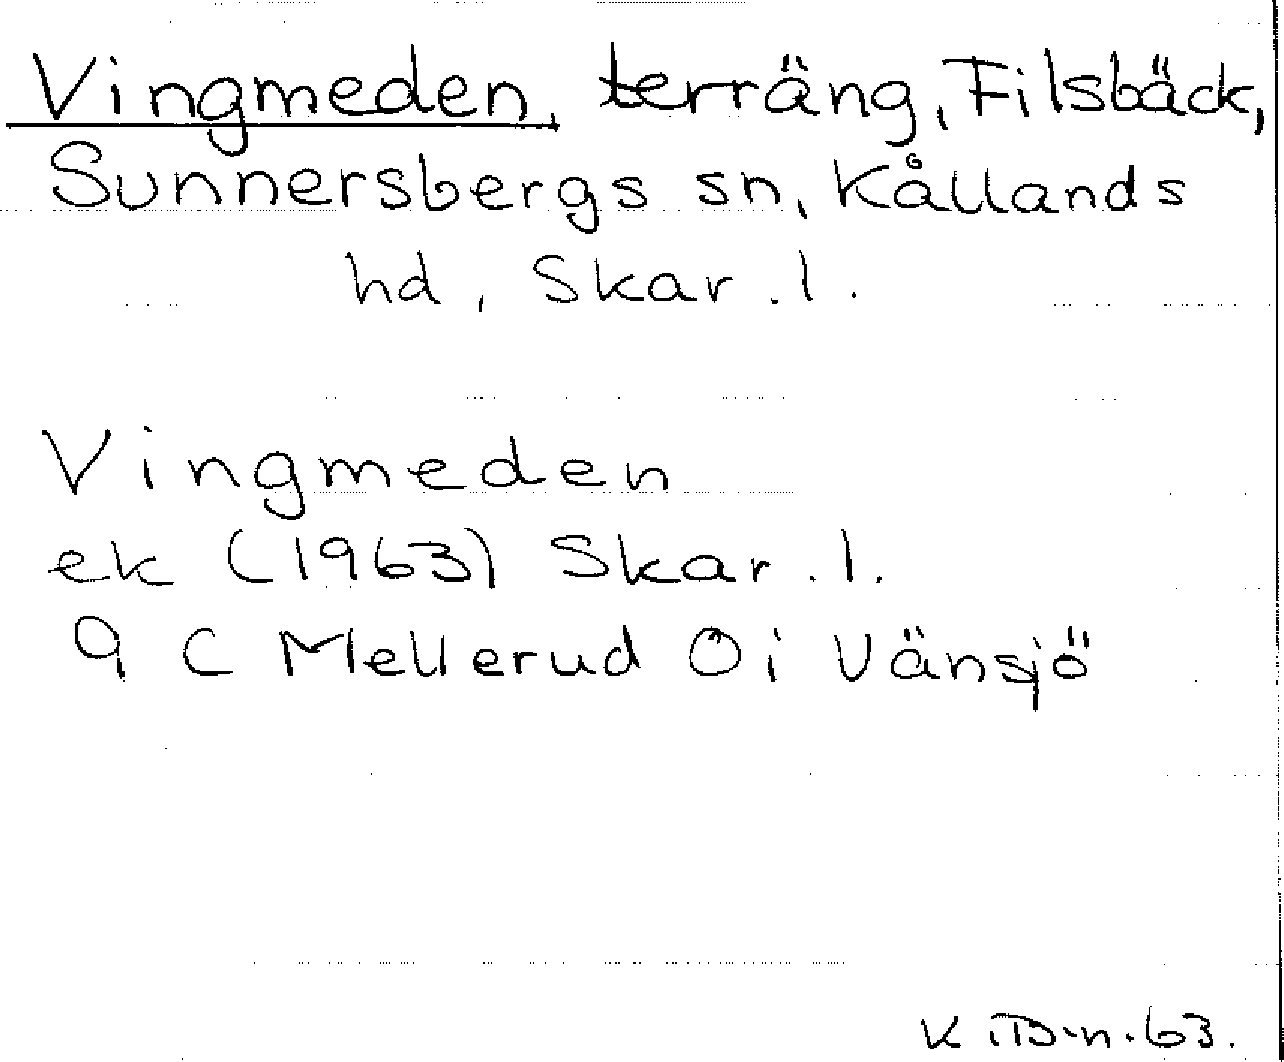 Vingmeden, terräng, Filsbäck,
Sunnersbergs sn, Kållands
hd, Skar. l.
Vingmeden
ek (1963) Skar. l.
9 C Mellerud Ö i Vänsjö
63.